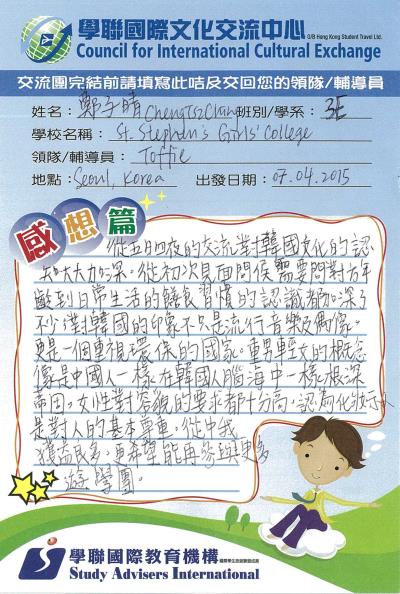 學聯國際文化交流中心
O/B Hong Kong Student Travel Ltd.
Council for International Cultural Exchange
交流團完結前請填寫此咭及交回您的領隊/輔導員
姓名:鄭子晴 Cheng Tsz Ching 班別/學系:3E
學校名稱:St. Stephen's Girls' College
領隊/輔導員:Toffie
地點:Seoul, Korea 出發日期:07.04.2015
感想篇
從五日四夜的交流對韓國文化的認
知大大加深。從初次見面問候需要問對方年
齡到日常生活的膳食習慣的認識都加深了
不少,對韓國的印象不只是流行音樂及偶像,
更是一個重視環保的國家。重男輕女的概念
像是中國人一樣在韓國人腦海中一樣根深
蒂固。女性對容貌的要求都十分高,認為化妝
是對人的基本尊重。從中我
獲益良多,更希望能再參與更多
遊學團。
學聯國際教育機構
Study Advisers International